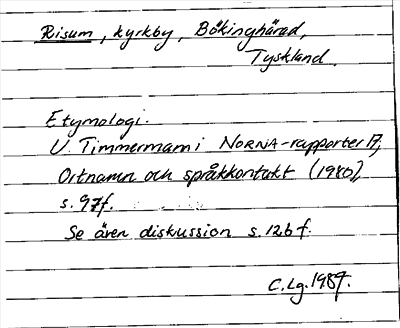 Risum, kyrkby, Bökinghärad,
Tyskland.
Etymologi.
U. Timmermann i NORNA-rapporter 17,
Ortnamn och språkkontakt (1980),
s. 97f.
Se även diskussion s. 126 f.
C. Lg. 1987.